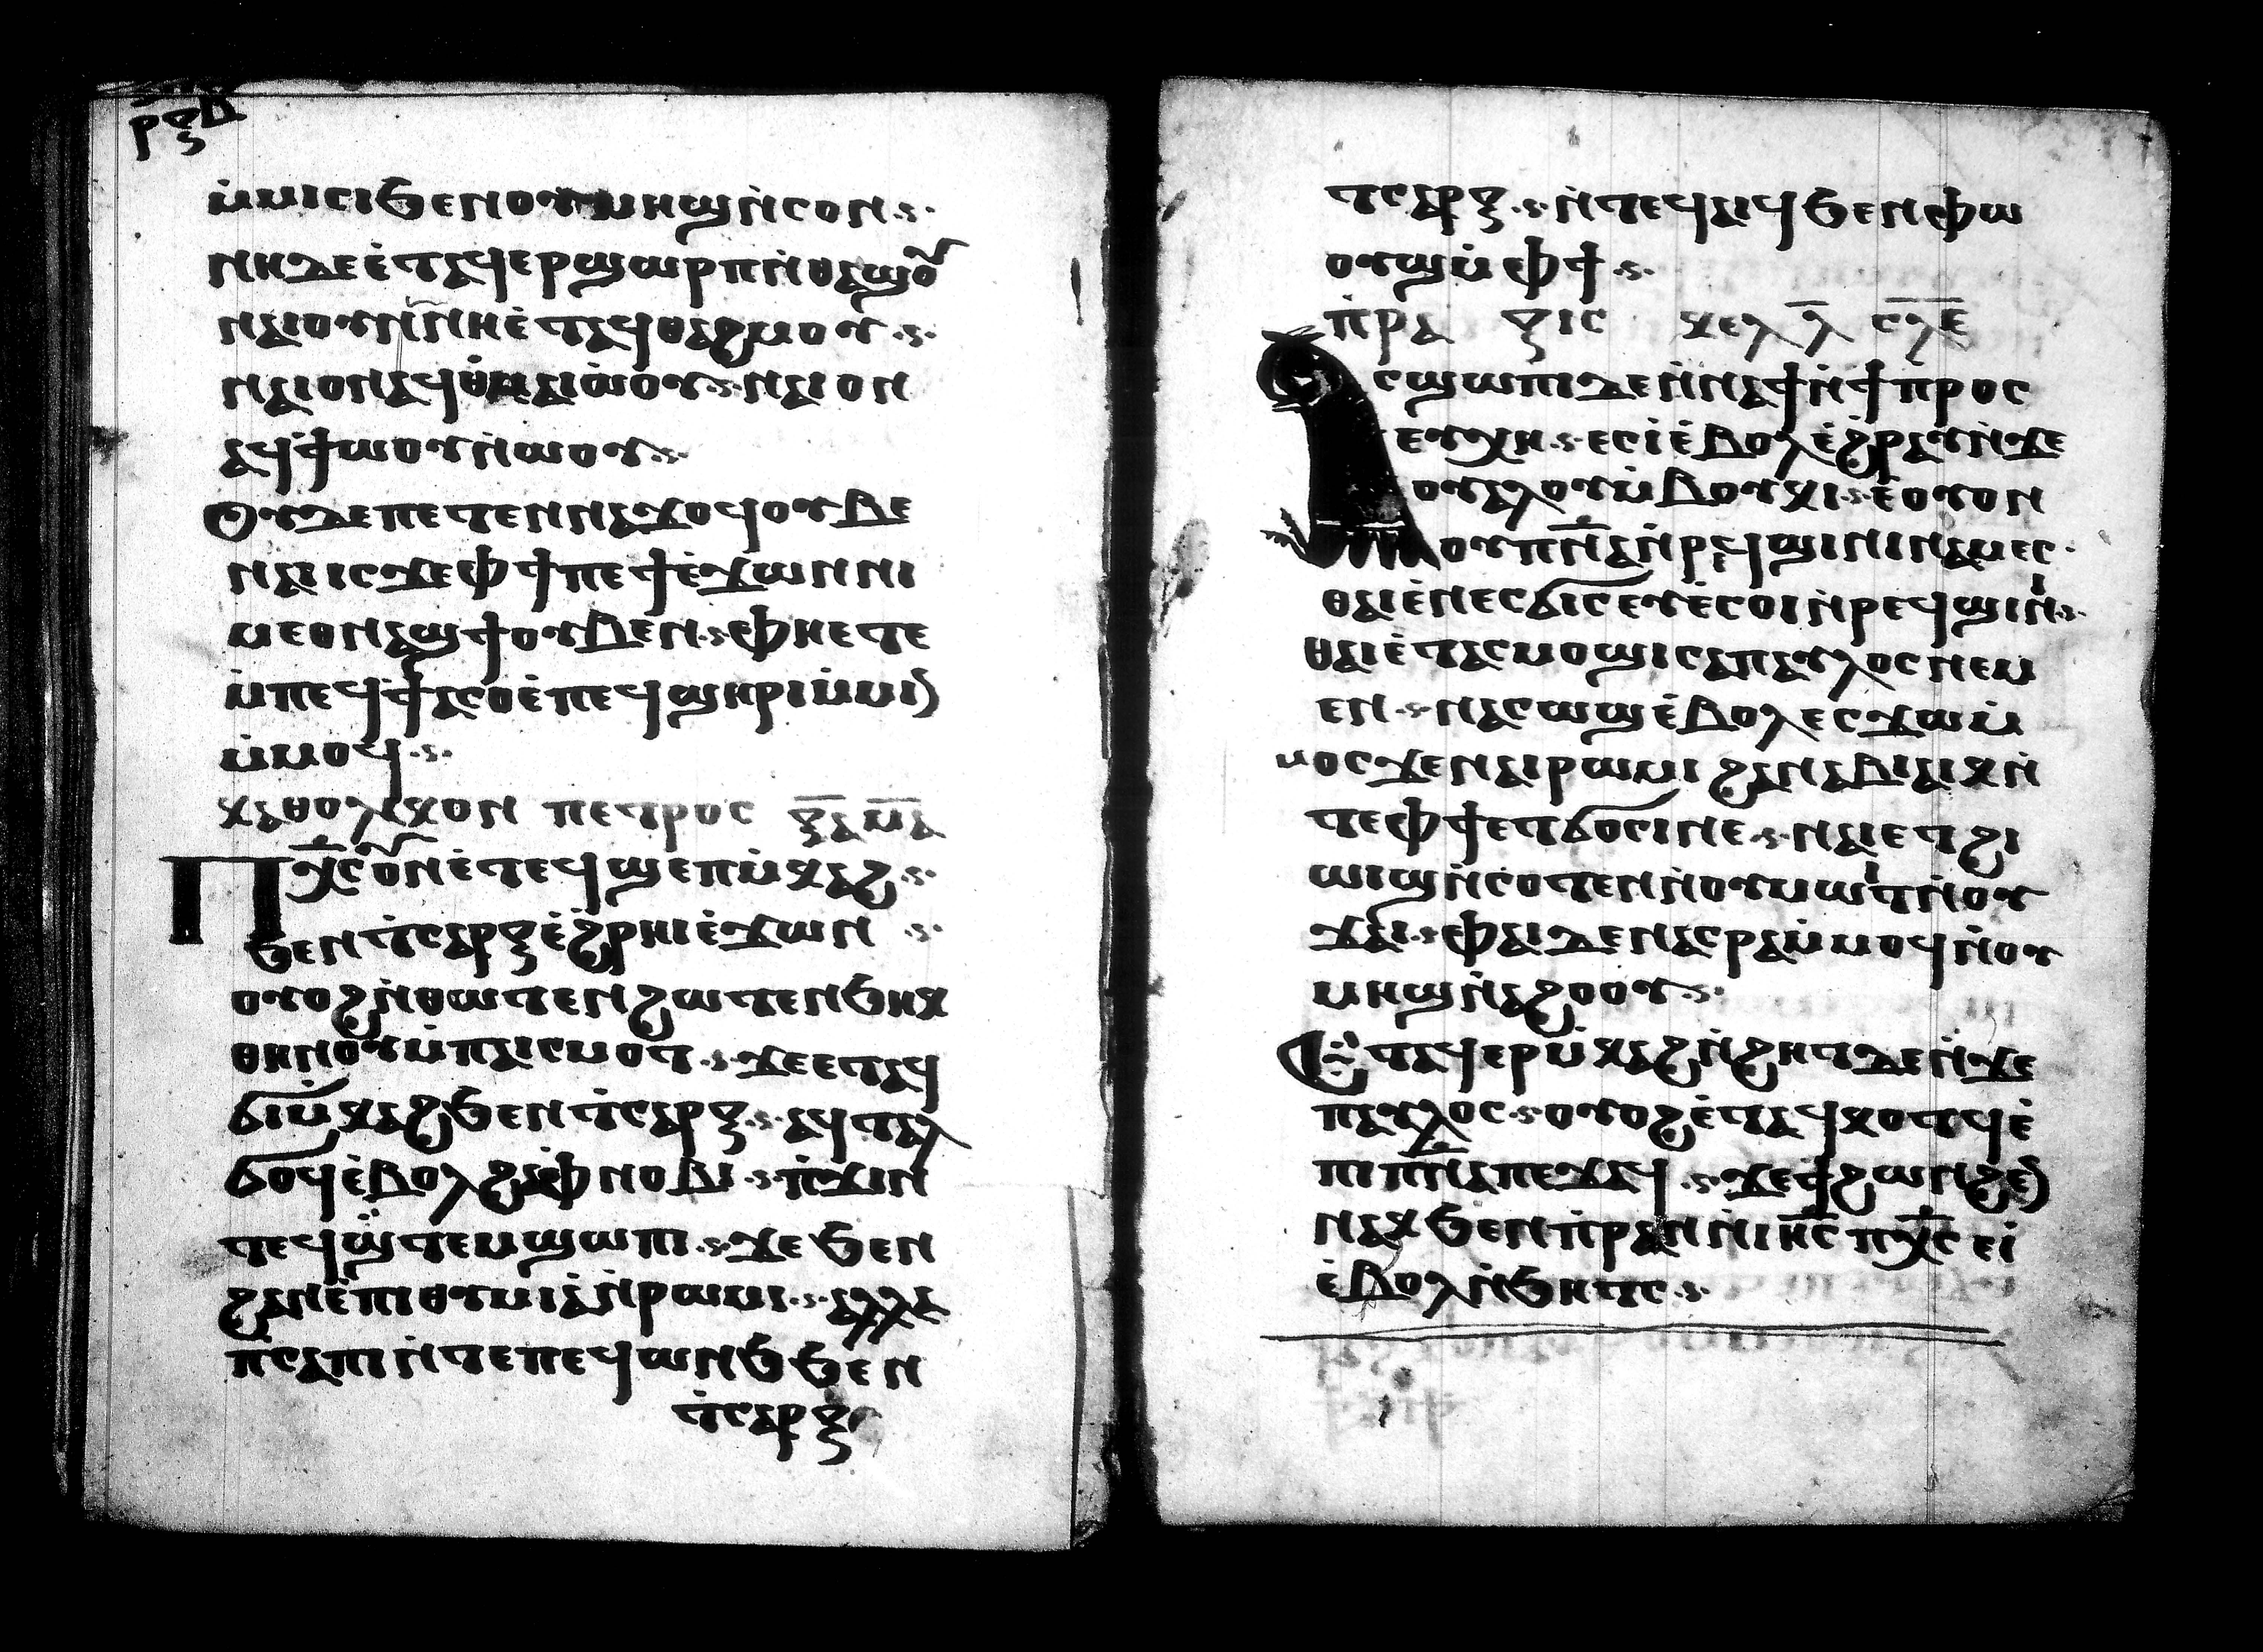 ⲣⲝⲇ
ⲙ̇ⲙⲓⲥⲓϧⲉⲛⲟⲩⲙⲏϣⲛ̇ⲥⲟⲛ·ⲋ·
ⲛⲏⲇⲉⲉ̇ⲧⲁϥⲉⲣϣⲱⲣⲡⲛ̇ⲑⲁϣⲟⲩ
ⲛⲁⲓⲟⲩⲛⲛ̇ⲛⲏⲉ̇ⲧⲁϥⲑⲁϩⲙⲟⲩ·ⲋ·
ⲛⲁⲓⲟⲛⲁϥⲑ̇ⲙⲁⲓⲱ̇ⲟⲩ·ⲋ·ⲛⲁⲓⲟⲛ
ⲁϥϯⲱⲟⲩⲛ̇ⲱⲟⲩ·ⲋ·
Ⲟⲩⲇⲉⲡⲉⲧⲉⲛⲛⲁϫⲟϥⲟⲩⲃⲉ
ⲛⲁⲓⲓⲥϫⲉⲫϯⲡⲉϯⲉ̇ϫⲱⲛⲛⲓ
ⲙⲉⲟⲛⲁϣϯⲟⲩⲃⲉⲛ·ⲋ·ⲫⲏⲉⲧⲉ
ⲙ̇ⲡⲉϥϯⲁⲥⲟⲉ̇ⲡⲉϥϣⲏⲣⲓⲙ̇ⲙⲓⲛ
ⲙ̇ⲙⲟϥ·ⲋ·
ⲕⲁⲑⲟⲗⲓⲕⲟⲛ ⲡⲉⲧⲣⲟⲥ ⲝ̅ⲁ̅ⲙ̅ⲁ̅
Ⲡⲭ̅ⲥ̅ⲟⲩⲛⲉ̇ⲧⲉϥϣⲉⲡⲙ̇ⲕⲁϩ·ⲋ·
ϧⲉⲛⲧ̇ⲥⲁⲣⲝⲉ̇ϩⲣⲏⲓⲉ̇ϫⲱⲛ ·ⲋ·
ⲟⲩⲟϩⲛ̇ⲑⲱⲧⲉⲛϩⲱⲧⲉⲛϧⲏⲕ
ⲑⲏⲛⲟⲩⲙ̇ⲡⲁⲓⲥⲙⲟⲧ·ⲋ·ϫⲉⲉⲧⲁϥ
ϭⲓⲙ̇ⲕⲁϩϧⲉⲛⲧ̇ⲥⲁⲣⲝ·ⲋ·ⲁϥⲧⲁⲗ
ϭⲟϥⲉ̇ⲃⲟⲗϩⲁⲫⲛⲟⲃⲓ·ⲋ·ⲡ̇ϫⲓⲛ
ⲧⲉϥϣ̇ⲧⲉⲙϣⲱⲡⲓ·ⲋ·ϫⲉϧⲉⲛ
ϩⲁⲛⲉ̇ⲡⲓⲑⲩⲙⲓⲁ̇ⲛ̇ⲣⲱⲙⲓ·ⲋ·ⲁⲗⲗⲁ
ⲡⲥⲁⲡⲓⲛ̇ⲧⲉⲡⲉϥⲱⲛϧϧⲉⲛ
ⲧ̇ⲥⲁⲣⲝ
ⲧⲥⲁⲣⲝ·ⲋ·ⲛ̇ⲧⲉϥⲁⲓϥϧⲉⲛⲫⲱ
ⲟⲩϣⲙ̇ⲫϯ·ⲋ·
ⲡ̇ⲣⲁ ⲝⲓⲥ ⲕⲉⲗⲗ̅ ⲥ̅ⲗ̅ⲉ̅
Ⲁⲥϣⲱⲡⲓⲇⲉⲛ̇ⲛⲁϯⲛ̇ϯⲡ̇ⲣⲟⲥ
ⲉⲩⲭⲏ·ⲋ·ⲉⲥⲓ̇ⲉ̇ⲃⲟⲗⲉ̇ϩⲣⲁⲩⲛ̇ϫⲉ
ⲟⲩⲁⲗⲟⲩⲙ̇ⲃⲟⲩⲕⲓ·ⲋ·ⲉ̇ⲟⲩⲟⲛ
ⲟⲩⲡⲛ̅ⲁ̅ⲛ̇ⲣⲉϥϣⲓⲛⲓⲛⲁⲙⲉⲥ·
ⲑⲁⲓⲉ̇ⲛⲉⲥϭⲓⲥⲉⲩⲉ̇ⲥⲟⲓⲛ̇ⲣⲉϥϣⲓⲛⲓ·ⲋ·
ⲑⲁⲓⲉ̇ⲧⲁⲥⲙⲟϣⲓⲥⲁⲡⲁⲩⲗⲟⲥⲛⲉⲙ
ⲉⲛ·ⲋ·ⲛⲁⲥⲱϣⲉ̇ⲃⲟⲗⲉⲥϫⲱⲙ̇
ⲙⲟⲥϫⲉⲛⲁⲓⲣⲱⲙⲓ ϩⲁⲛⲁⲃⲓⲁⲓⲕⲛ̇
ⲧⲉⲫϯⲉⲧϭⲟⲥⲓⲛⲉ·ⲋ·ⲛⲁⲓⲉⲧϩⲓ
ⲱⲓϣⲛ̇ⲥⲟⲧⲉⲛⲛ̇ⲟⲩⲙⲱⲓⲧⲛ̇ⲟⲩ
ϫⲁⲓ·ⲋ·ⲫⲁⲓⲇⲉⲛⲁⲥⲣⲁⲙ̇ⲙⲟϥⲛ̇ⲟⲩ
ⲙⲏϣⲛ̇ⲁϩⲟⲟⲩ·ⲋ·
Ⲉⲧⲁϥⲉⲣⲙ̇ⲕⲁϩⲛ̇ϩⲏⲧⲇⲉⲛ̇ϫⲉ
ⲡⲁⲩⲗⲟⲥ·ⲋ·ⲟⲩⲟϩⲉ̇ⲧⲁϥⲕⲟⲧϥⲉ̇
ⲡⲓⲡⲛ̅ⲁ̅ⲡⲉϫⲁϥ·ⲋ·ϫⲉϯϩⲱⲛϩⲉⲛ
ⲛⲁⲕϧⲉⲛⲡ̇ⲣⲁⲛⲛ̇ⲓⲏ̅ⲥ̅ⲡⲭ̅ⲥ̅ⲉⲓ̇
ⲉ̇ⲃⲟⲗⲛ̇ϧⲏⲧⲥ·ⲋ·